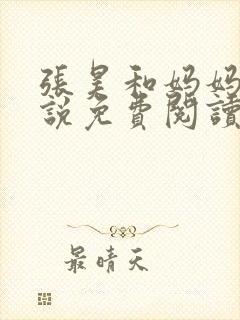 張昊和妈妈
說免費閱讀
最晴天